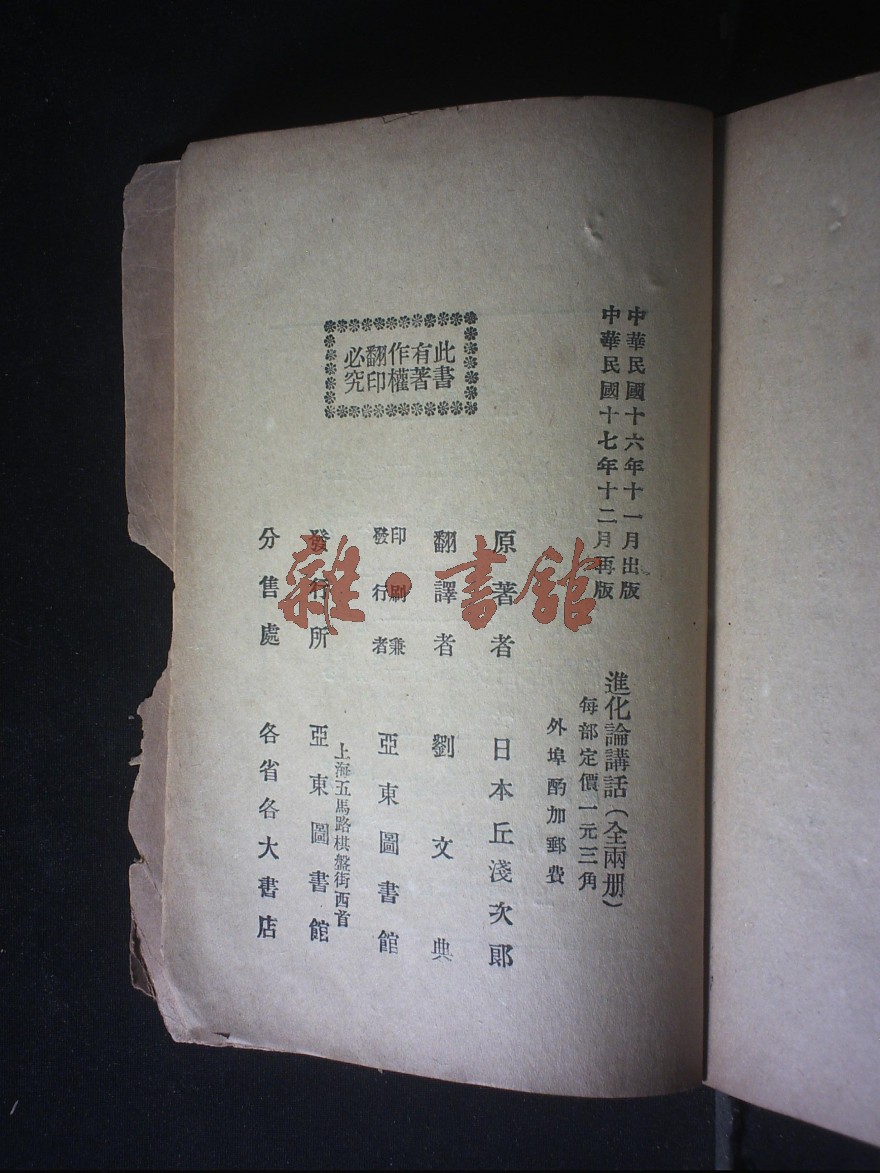 中華民國十六年十一月出版
中華民國十七年十二月再版
進化論講話（全兩册）
每部定價一元三角
外埠酌加郵費
此書
有著
作權
翻印
必究
原著者 日本丘淺次郎
翻譯者 劉文典
印刷兼
發行者 亞東圖書館
上海五馬路棋盤街西首
發行所 亞東圖書館
分售處 各省各大書店
雜·書館